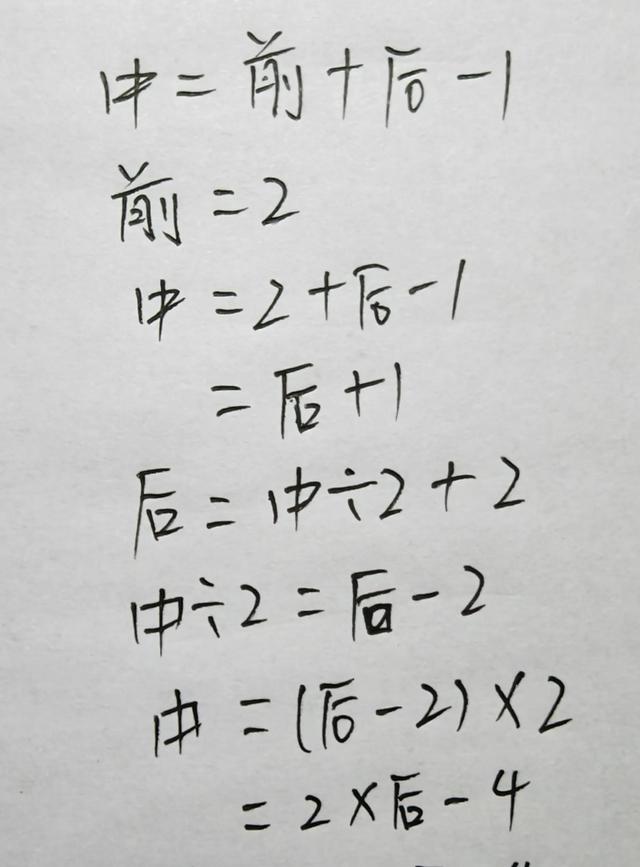 中=前+后-1
前=2
中=2+后-1
=后+1
后=中÷2+2
中÷2=后-2
中=(后-2)×2
=2×后-4